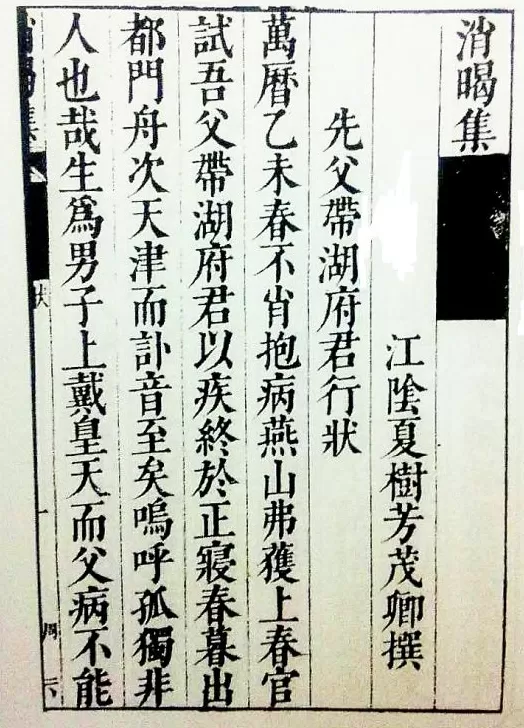 消暍集
江陰夏樹芳茂卿撰
先父帶湖府君行狀
萬曆乙未春不肖抱病燕山弗獲上春官
試吾父帶湖府君以疾終於正寢春暮出
都門舟次天津而訃音至矣嗚呼孤獨非
人也哉生爲男子上戴皇天而父病不能
狀
一